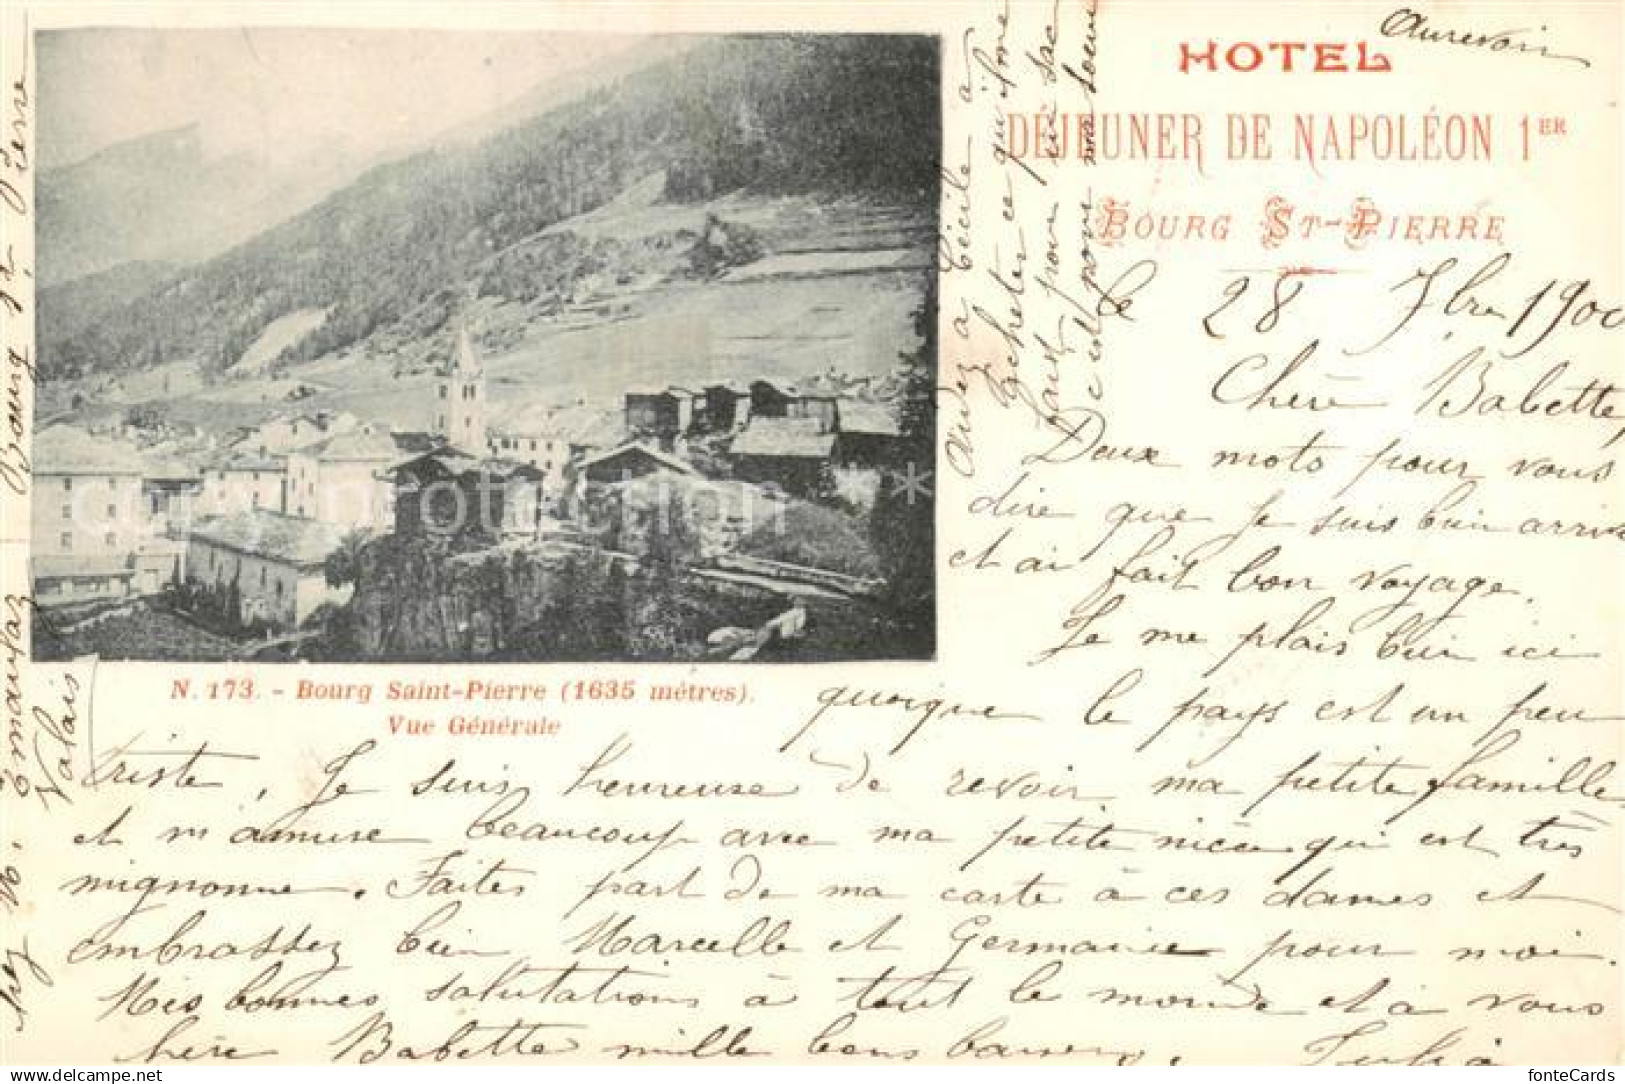 HOTEL
DÉJEUNER DE NAPOLÉON 1ER
BOURG ST-PIERRE
N. 173. - Bourg Saint-Pierre (1635 mètres).
Vue Générale
Aurevoir
le 28 7bre 1900
Chère Babette,
Deux mots pour vous
dire que je suis bien
et ai fait bon voyage.
Je me plais bien ici
quoique le pays est un peu
triste, Je suis heureuse de revoir ma petite famille
et m'amuse beaucoup avec ma petite nièce qui est très
mignonne. Faites part de ma carte à ces dames et
embrassez bien Marcelle et Germaine pour moi.
Mes bonnes salutations à tout le monde et à vous
chère Babette mille bons baisers.
Aidez a Cécile à
acheter ce qu'il me
faut pour un sac
c'est pour ma soeur
chez M. Bourg St Pierre
Valais
card protection *
fonteCards